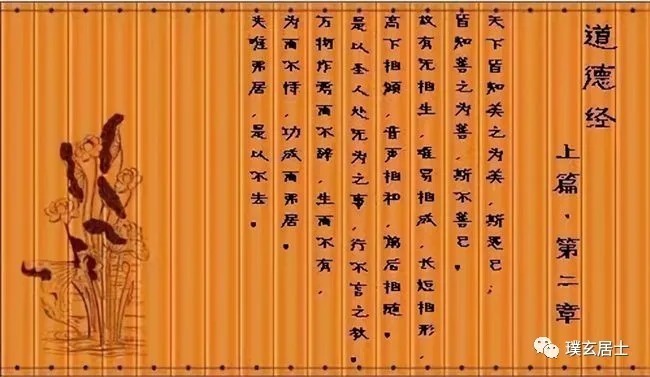 道德经
上篇、第二章
天下皆知美之为美，斯恶已；
皆知善之为善，斯不善已。
故有无相生，难易相成，长短相形，
高下相倾，音声相和，前后相随。
是以圣人处无为之事，行不言之教。
万物作焉而不辞，生而不有，
为而不恃，功成而弗居。
夫唯弗居，是以不去。
璞玄居士